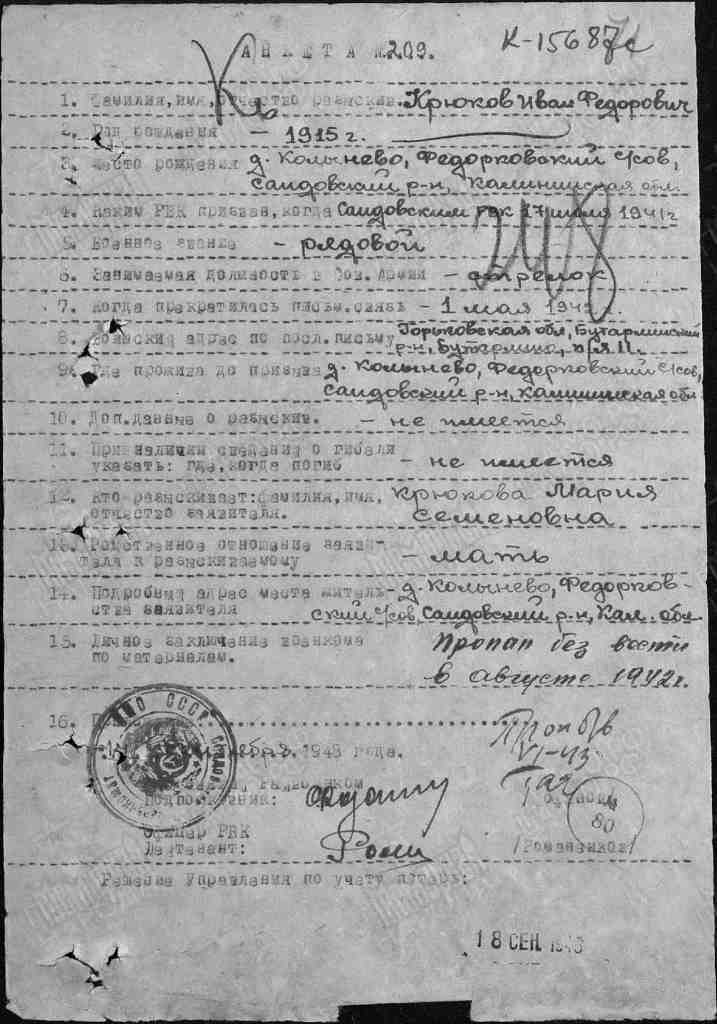 К-15687с
АНКЕТА №209.
1. Фамилия, имя, отчество разыскив. Крюков Иван Федорович
2. Год рождения - 1915 г.
3. Место рождения д. Колынево, Федорковский с/сов,
Сандовский р-н, Калининская обл.
4. Каким РВК призван, когда Сандовским РВК 17 июля 1941 г
5. Военное звание - рядовой
6. Занимаемая должность в Сов. Армии - стрелок
7. Когда прекратилась письм. связь - 1 мая
8. Воинский адрес по посл. письму Горьковская обл,
р-н, п/я
9. Где прожива до призыва д. Колынево, Федорковский с/сов,
Сандовский р-н, Калининская обл
10. Доп. данные о разыскив. - не имеется
11. При наличии сведений о гибели
указать: где, когда погиб - не имеется
12. Кто разыскивает: фамилия, имя, Крюкова Мария
отчество заявителя. Семеновна
13. Родственное отношение заяви-
теля к разыскиваемому - мать
14. Подробный адрес места житель- д. Колынево, Федорков-
ства заявителя ский с/сов, Сандовский р-н, Кал. обл
15. Личное заключение военкома Пропал без вести
по материалам. в августе 1942 г.
16.
НКО СССР
года.
Подполковник:
Офицер РВК
Лейтенант: /Романенков/
80
Решение Управления по учету потерь:
18 СЕН